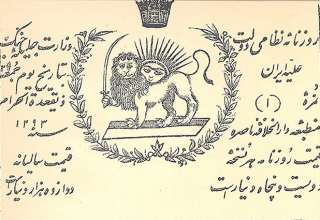 روزنامه نظامی دولت
علیه ایران
نمرهٔ
(۱)
منطبعه دار الخلافه ناصره
قیمت روزنامه هر نسخه
دویست و پنجاه دینار است
وزارت جلیله جنگ
بتاریخ یوم
ذیقعدة الحرام
سنه ۱۲۹۳
قیمت سالیانه
دوازده هزار دینار